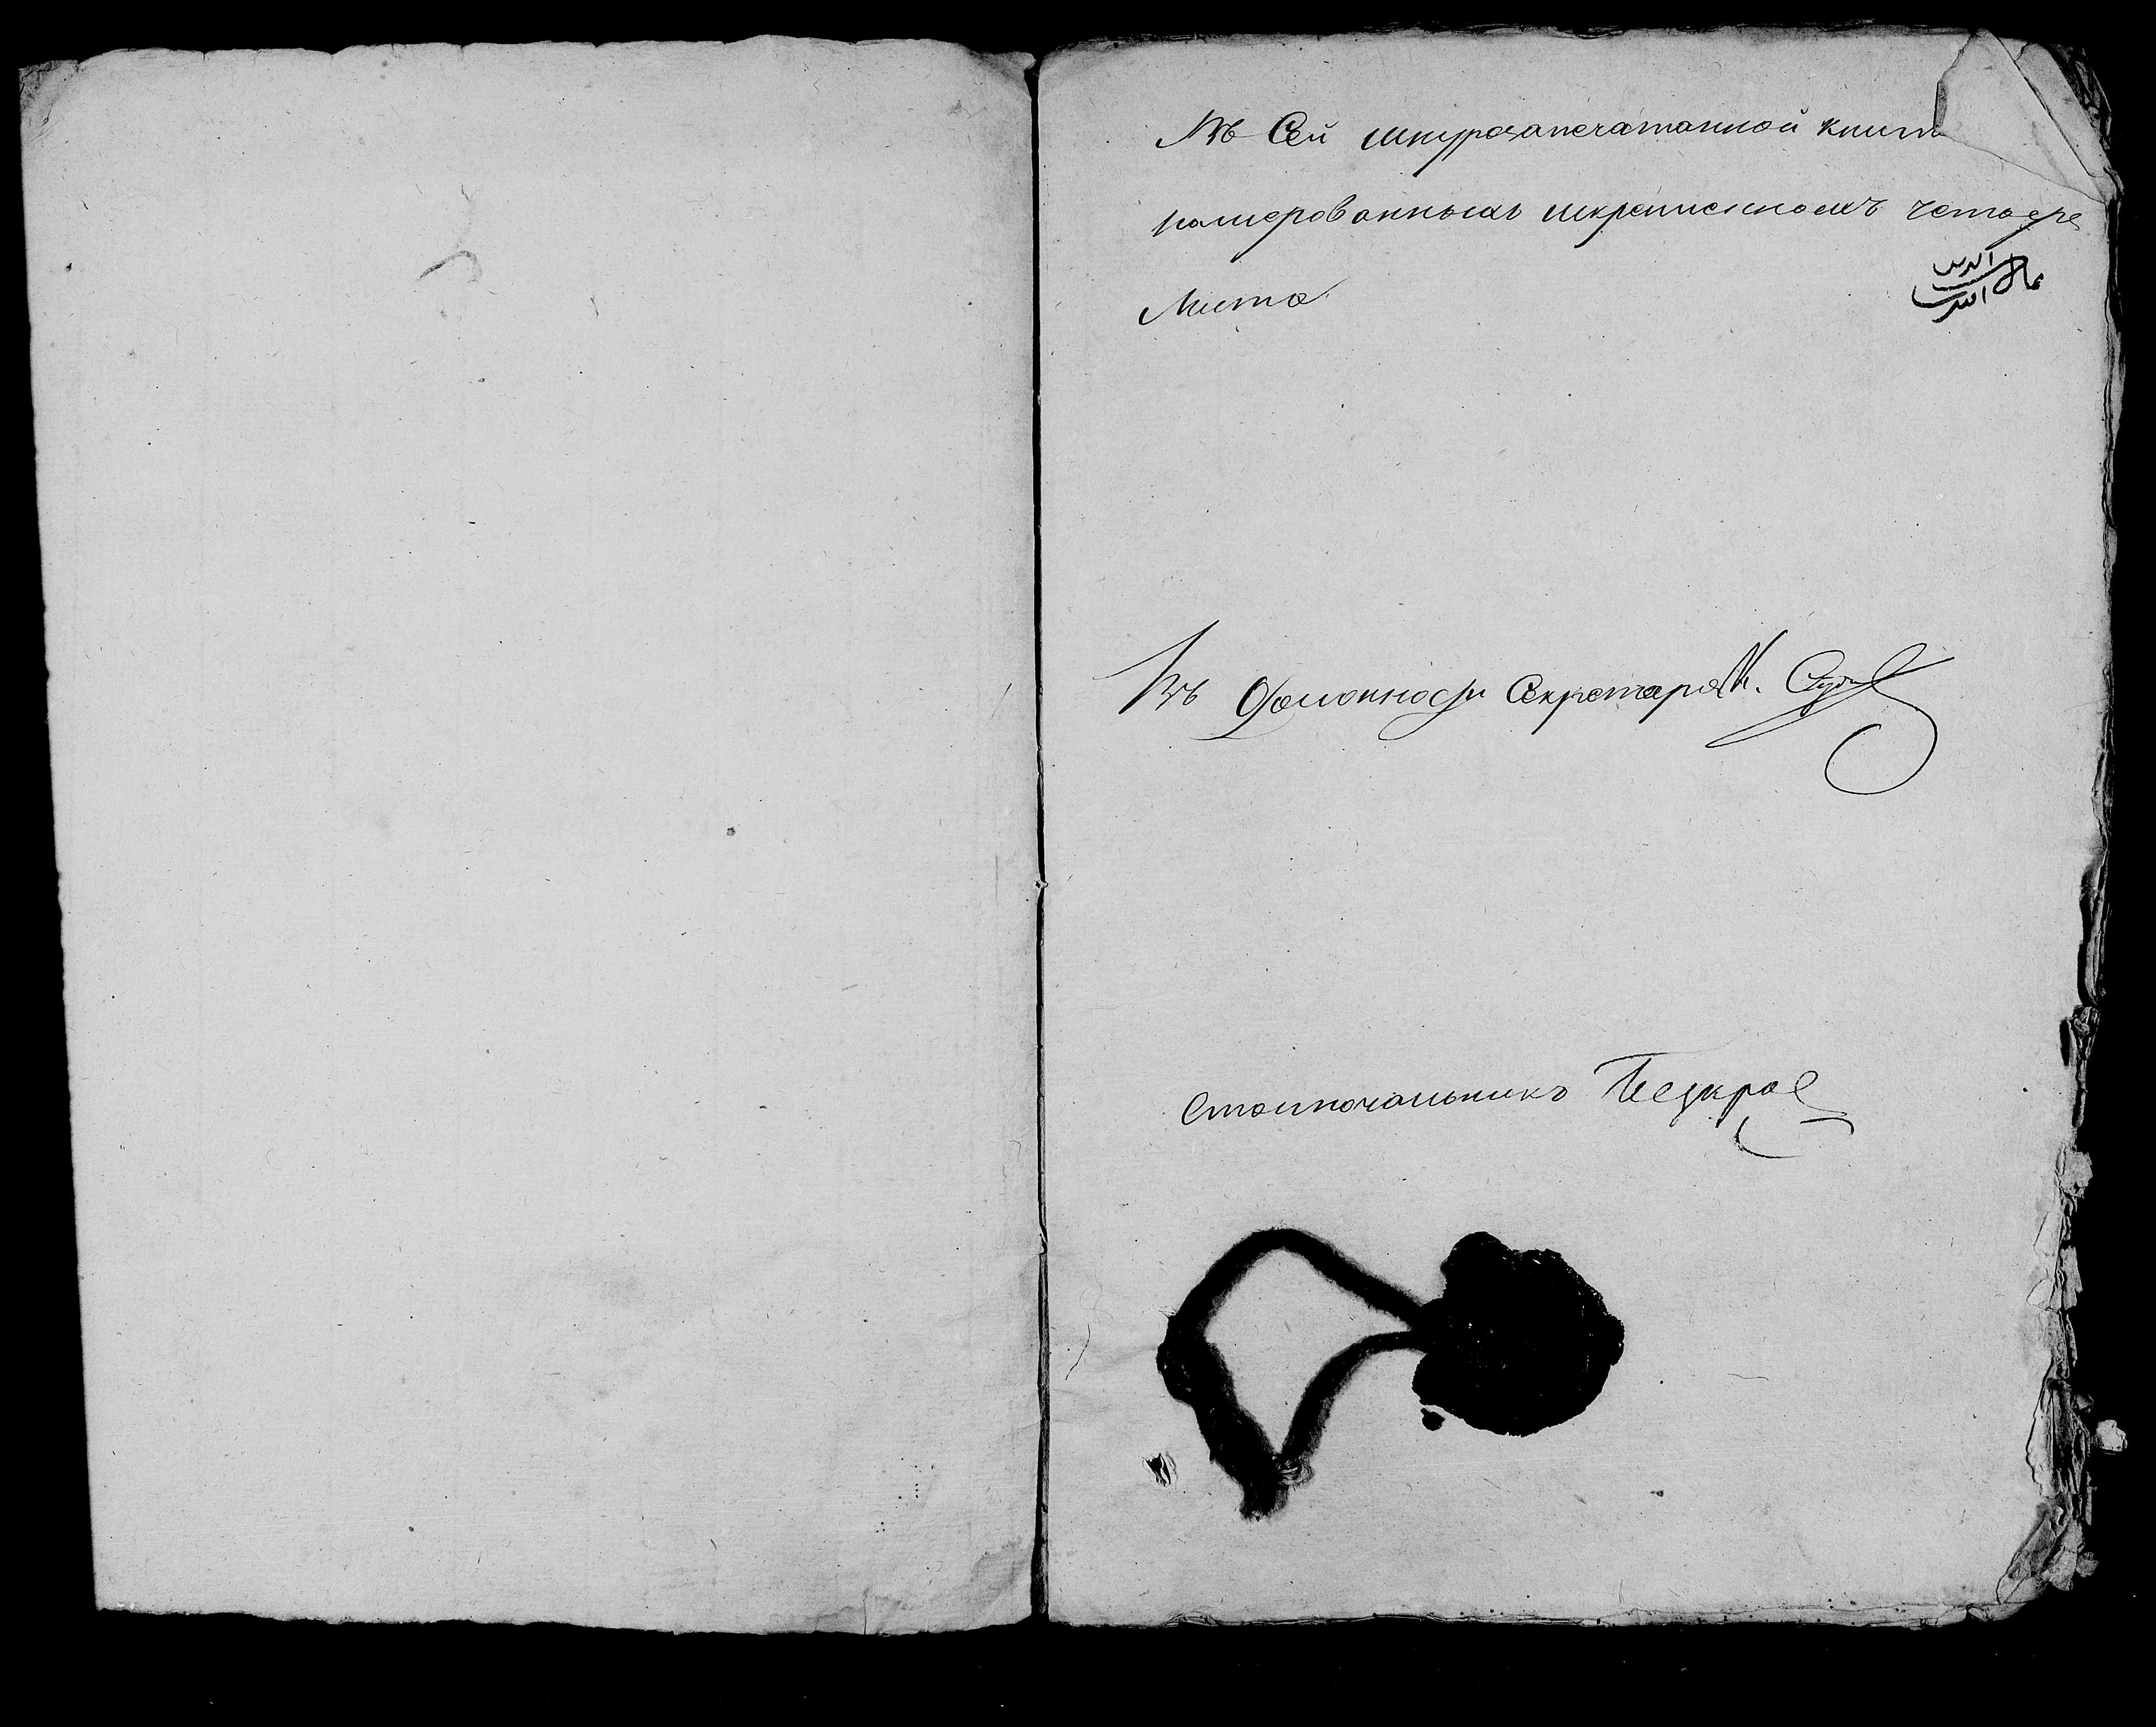 Въ Сей шнурозапечатанной книг
номерованныхъ искрепленныхъ четыре
Листа
Въ Должности Секретаря
Столоначальникъ